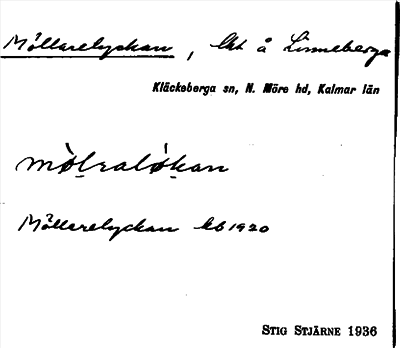 Möllarelyckan, lht å Linneberga
Kläckeberga sn, N. Möre hd, Kalmar län
mòl̥ralòkan
Möllerelyckan kb 1920
STIG STJÄRNE 1936